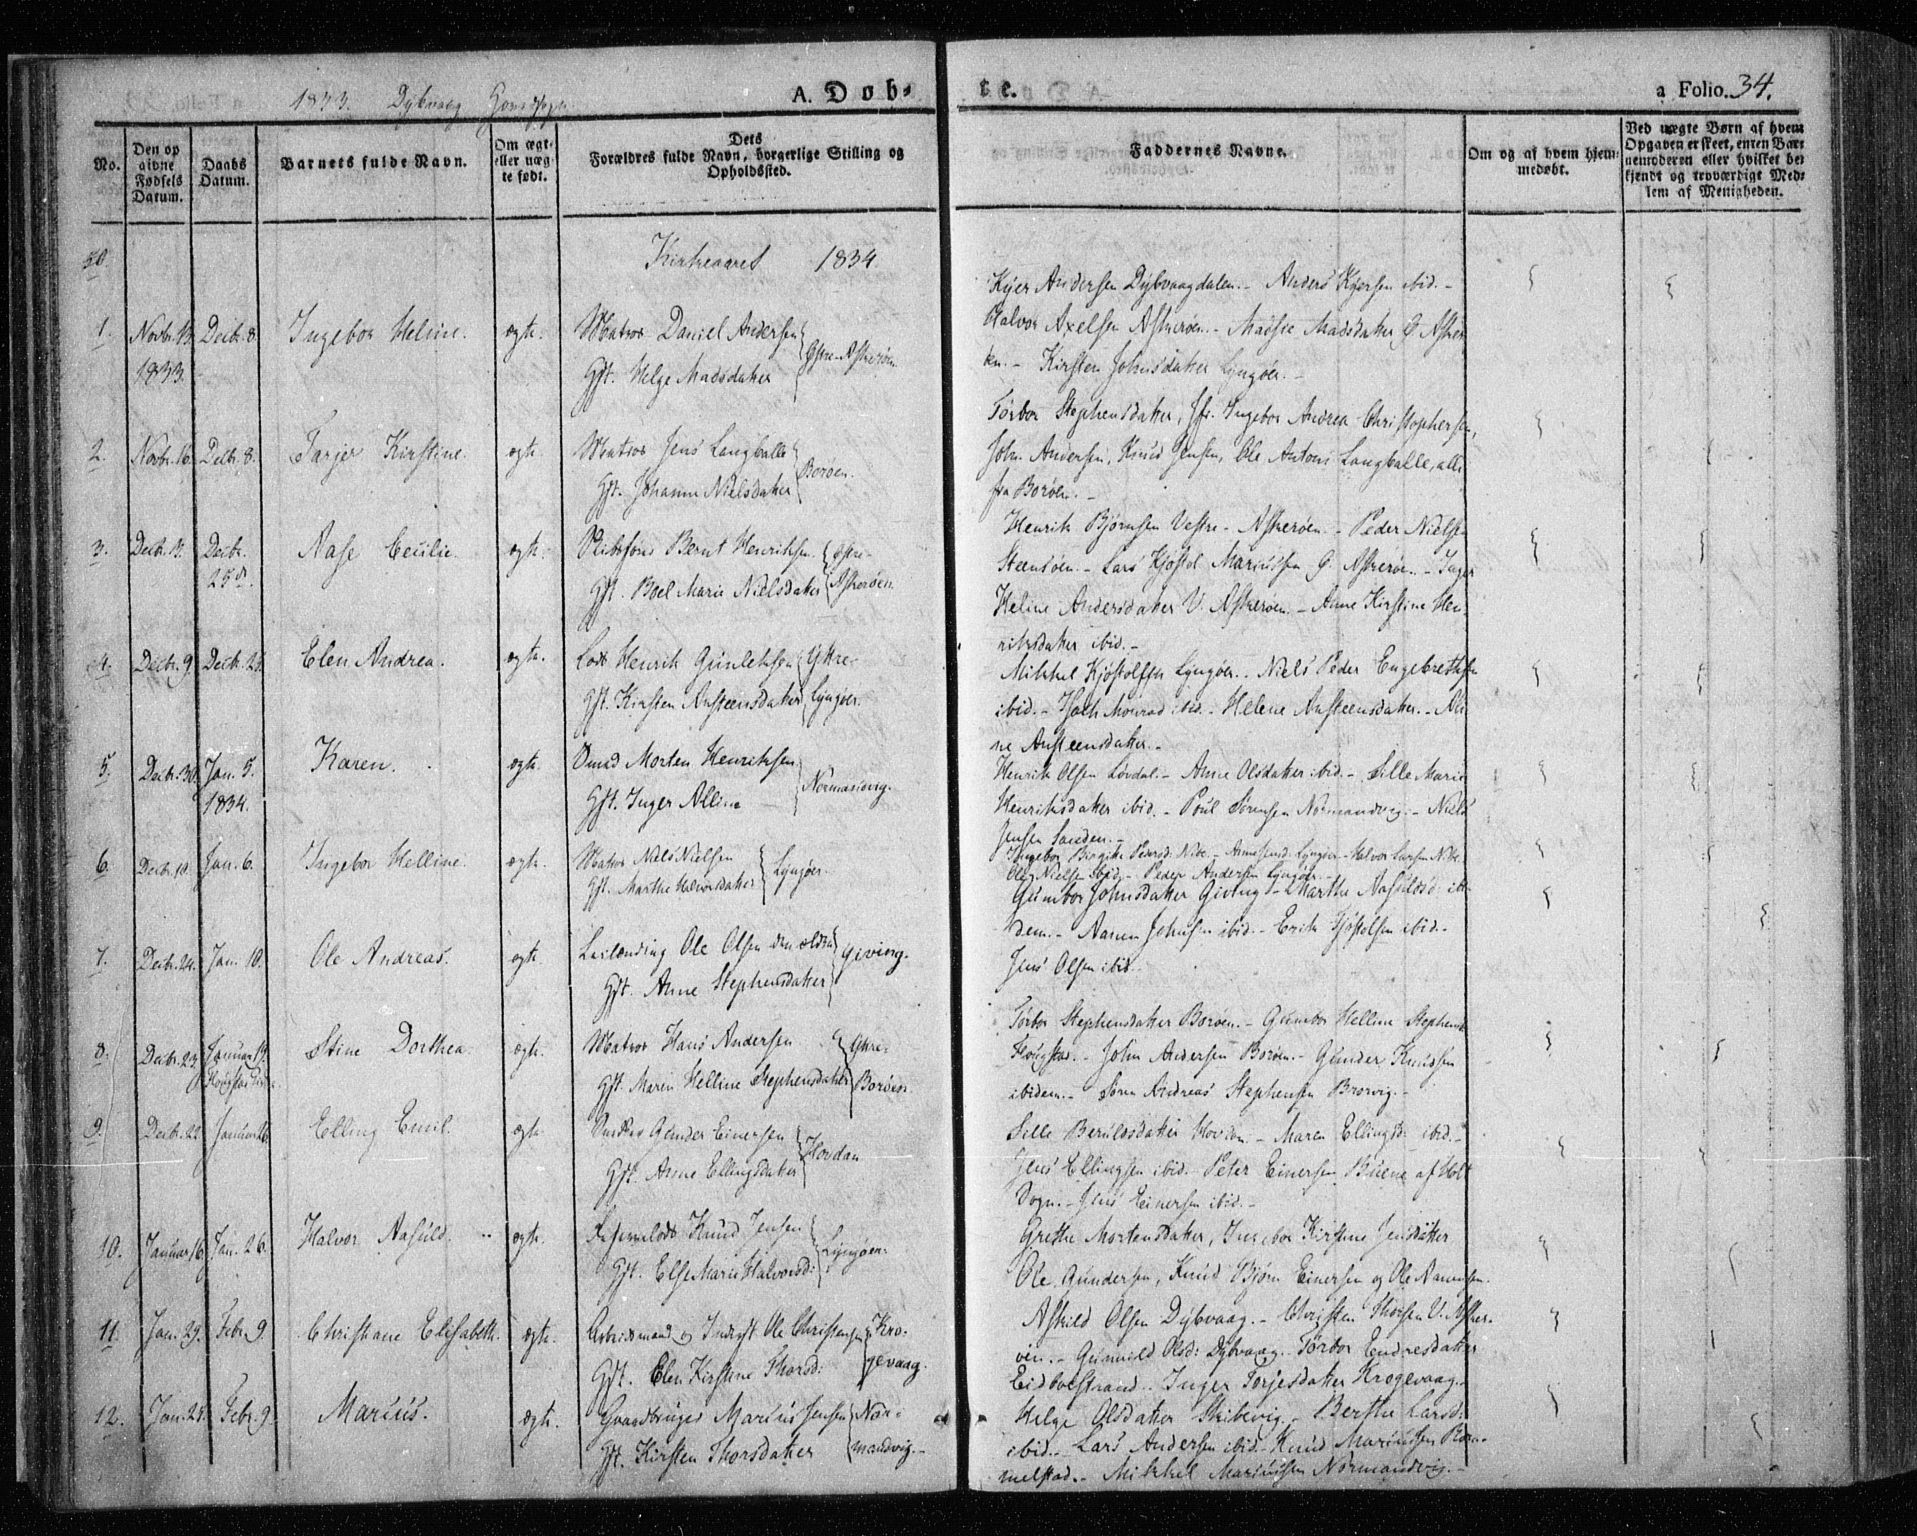 1833. Dybvaag
A. Døb-
te.
a Folio. 34.
No.
Den op
givne
Fødsels
Datum.
Daabs
Datum.
Barnets fulde Navn.
Om ægt-
eller uæg-
te født.
Dets
Forældres fulde Navn, borgerlige Stilling og
Opholdssted.
Faddernes Navne.
Om og af hvem hjem-
medøbt.
Ved uægte Børn af hvem
Opgaven er skeet, enten Bar-
nemoderen eller hvilket be-
kjendt og troværdigt Med-
lem af Menigheden.
Kirkeaaret 1834
1. Novbr. 13. Decbr. 8. Ingebor Heline. ægte. Matros Daniel Andersen
1833. Gft. Helge Madsdatter
Østre-Askerøen
Kijer Andersen Dybvaagdalen. - Anders Kjersen ibid. -
Halvor Axelsen Askerøen. - Madsdatter Ø. Asker-
øen. - Kirsten Johnsdatter Lyngøer. -
2. Novbr. 16. Decbr. 8. Tarjer Kirstine. ægte Matros Jens Langballe
Gft. Johanne Nielsdatter
Borøen.
Torbor Stephensdatter, Jfr. Ingebor Andrea Christophersen,
John Andersen, Knud Jensen, Ole Antons Langballe, alle
fra Borøen. -
3. Decbr. Decbr. Aase Cecilie. ægte. Bernt Henriksen.
25de. Gft. Boel Marie Nielsdatter
Østre-
Askerøen.
Henrik Bjørnsen Vestre-Askerøen. - Peder Nielsen
Steensøen. - Lars Kjøstol Mariussen Ø. Askerøen. - Inger
Heline Andersdatter V. Askerøen. - Anne Kirstine Hen-
riksdatter ibid. -
4. Decbr. 9. Decbr. Elen Andrea. ægte. Lods Henrik Gunleksen
Gft. Kirsten Ansteensdatter
Yttre-
Lyngøer.
Mikkel Kjøstolffsen Lyngøer. Niels Peder Engebrethsen
ibid. - Monrad ibid. - Helene Ansteensdatter. - Ali-
ne Ansteensdatter. -
5. Decbr. 30. Jan. 5. Karen. ægte. Smed Morten Henriksen
1834. Gft. Inger Alline
Normandvig.
Henrik Olsen Løvdal. - Anne Olsdatter ibid. - Sille Marie
Henriksdatter ibid. - Poul Sørensen Normandvig. - Niels
Jensen Sanden. -
6. Decbr. 10. Jan. 6. Ingebor Helline. ægte. Matros Niels Nielsen
Gft. Marthe Halvorsdatter
Lyngøer.
Ingebor Birgitte Pedersd. - Lyngøer - Halvor Larsen
Ole Nielsen ibid. - Peder Andersen Lyngøer. -
7. Decbr. 24. Jan. 10. Ole Andreas. ægte. Leilænding Ole Olsen den ældre
Gft. Anne Stephensdatter
Giving.
Gumbor Johnsdatter Giving - Marthe Aasulds. ibi-
dem. - Aanen Johnsen ibid. - Erik Kjøstolsen ibid. -
Jens Olsen ibid.
8. Decbr. 23. Januar 19. Stine Dorthea. ægte. Matros Hans Andersen
Gft. Maren Helline Stephensdatter
Yttre-
Borøen.
Torbor Stephensdatter Borøen. - Gumbor Helline Stephensd.
Flougstad. - John Andersen Borøen. - Gunder Knudsen
ibidem. - Søren Andreas Stephensen Brorvig. -
9. Decbr. 22. Januar 26. Elling Emil ægte. Gunder Einersen
Gft. Anne Ellingsdatter
Hovdan
Sille Berulsdatter Hovdan. - Maren Ellingsd. ibid. -
Jens Ellingsen ibid. Peter Einersen Buene af Holt
Sogn. - Jens Einersen ibid. -
10. Januar 16. Jan. 26. Halvor Aasuld. ægte. Knud Jensen
Gft. Else Marie Halvorsd:
Lyngøer.
Grethe Mortensdatter, Ingebor Kirstine Jensdatter
Ole Gundersen, Knud Bjørn Einersen og Ole Aanensen.
11. Jan. 29. Febr. 9. Christiane Elisabeth. ægte. Arbeidsmand og Inderst Ole Christensen
Gft. Elen Kirstine Thorsd:
Kro-
gevaag.
Askild Olsen Dybvaag. - Christen Thorsen V. Asker-
øen. - Gunvild Olsd: Dybvaag. Torbor Endresdatter
Eidboestrand. Inger Torjesdatter Krogevaag. -
12. Jan. 25. Febr. 9. Marius. ægte. Gaardbruger Marius Jensen
Gft. Kirsten Thorsdatter
Nor-
mandvig. -
Helge Olsdatter Skibevig. - Berthe Larsd:
ibid. - Lars Andersen ibid. - Knud Mariussen Rom-
melstad. - Mikkel Mariussen Normandvig. -